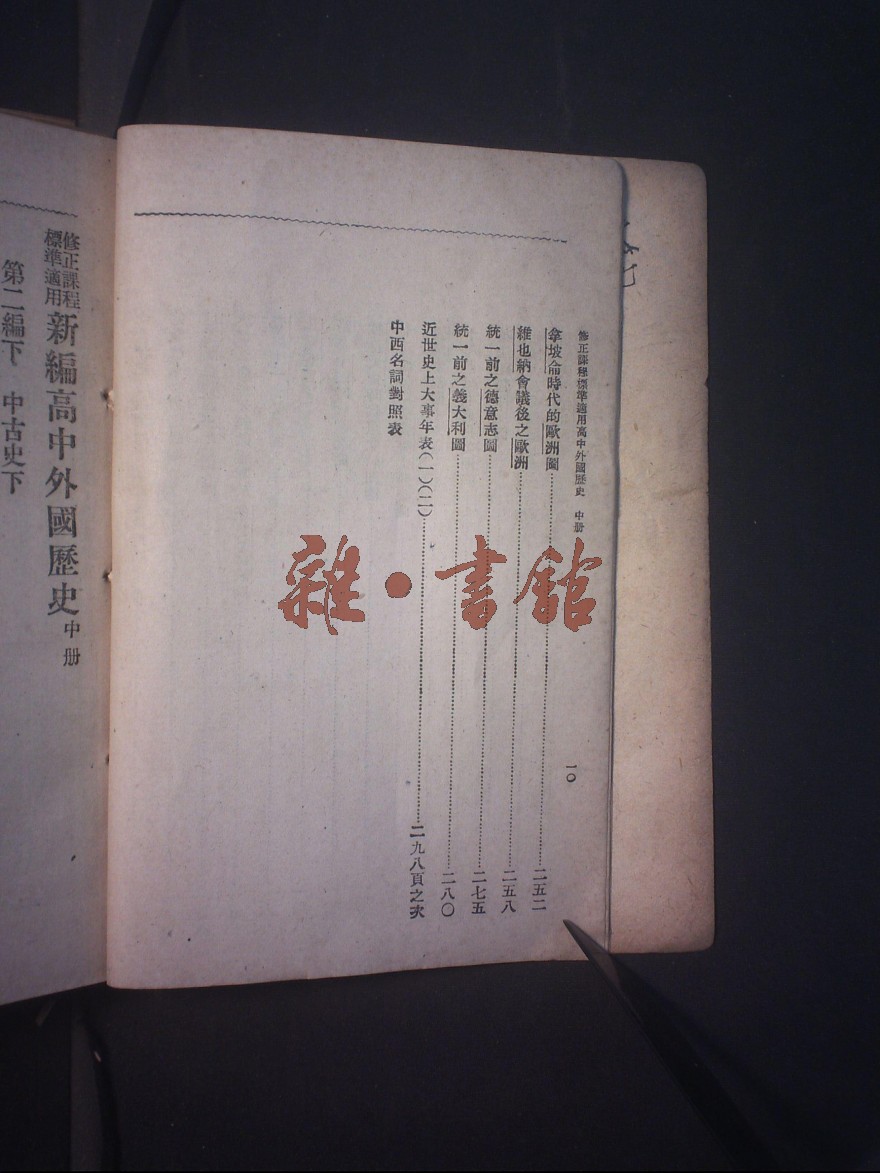 修正課程標準適用高中外國歷史 中册
一〇
拿坡侖時代的歐洲圖……二五二
維也納會議後之歐洲……二五八
統一前之德意志圖……二七五
統一前之義大利圖……二八〇
近世史上大事年表(一)(二)……二九八頁之次
中西名詞對照表
修正課程
標準適用
新編高中外國歷史 中册
第二編下 中古史下
雜·書館